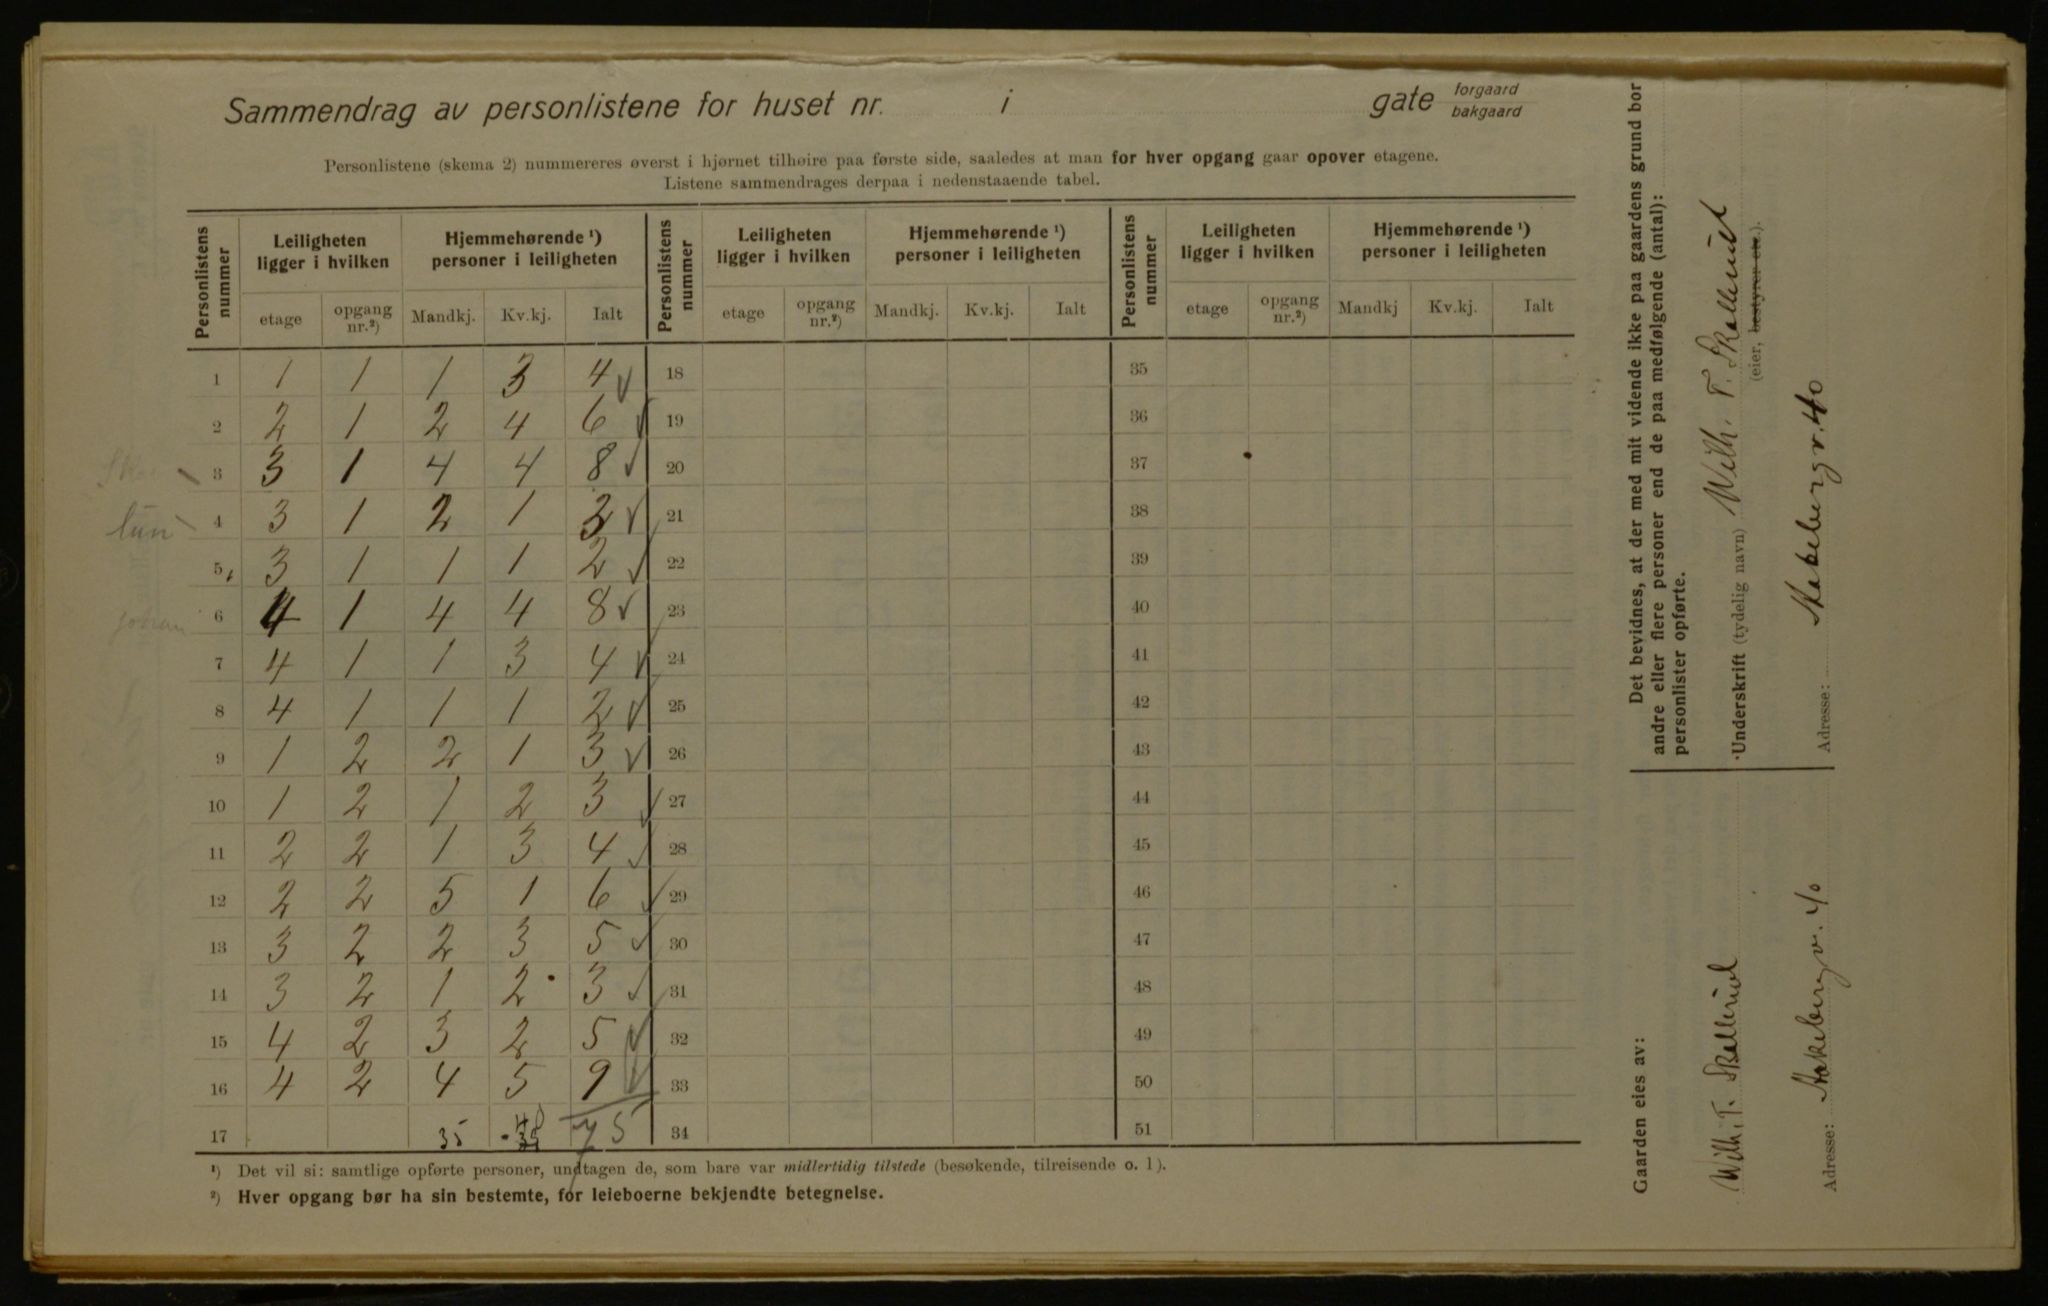 Sammendrag av personlistene for huset nr. i gate forgaard bakgaard
Personlistene (skema 2) nummereres øverst i hjørnet tilhøire paa første side, saaledes at man for hver opgang gaar opover etagene.
Listene sammendrages derpaa i nedenstaaende tabel.
Personlistens nummer Leiligheten ligger i hvilken Hjemmehørende ¹) personer i leiligheten Personlistens nummer Leiligheten ligger i hvilken Hjemmehørende ¹) personer i leiligheten Personlistens nummer Leiligheten ligger i hvilken Hjemmehørende ¹) personer i leiligheten
etage opgang nr.²) Mandkj. Kv.kj. Ialt etage opgang nr.²) Mandkj. Kv.kj. Ialt etage opgang nr.²) Mandkj Kv.kj. Ialt
1 1 1 1 3 4 ✓ 18 35
2 2 1 2 4 6 ✓ 19 36
3 3 1 4 4 8 ✓ 20 37
lun 4 3 1 2 1 3 ✓ 21 38
5 3 1 1 1 2 ✓ 22 39
johan 6 4 1 4 4 8 ✓ 23 40
7 4 1 1 3 4 ✓ 24 41
8 4 1 1 1 2 ✓ 25 42
9 1 2 2 1 3 ✓ 26 43
10 1 2 1 2 3 ✓ 27 44
11 2 2 1 3 4 ✓ 28 45
12 2 2 5 1 6 ✓ 29 46
13 3 2 2 3 5 ✓ 30 47
14 3 2 1 2 3 ✓ 31 48
15 4 2 3 2 5 ✓ 32 49
16 4 2 4 5 9 ✓ 33 50
17 35 40 75 34 51
¹) Det vil si: samtlige opførte personer, undtagen de, som bare var midlertidig tilstede (besøkende, tilreisende o. l).
²) Hver opgang bør ha sin bestemte, for leieboerne bekjendte betegnelse.
Det bevidnes, at der med mit vidende ikke paa gaardens grund bor
andre eller flere personer end de paa medfølgende (antal):
personlister opførte.
Underskrift (tydelig navn) Wilh. T. Skallerud
(eier, bestyrer etc.).
Adresse: Aakebergv. 40
Gaarden eies av:
Wilh. T. Skallerud
Adresse: Aakebergv. 40